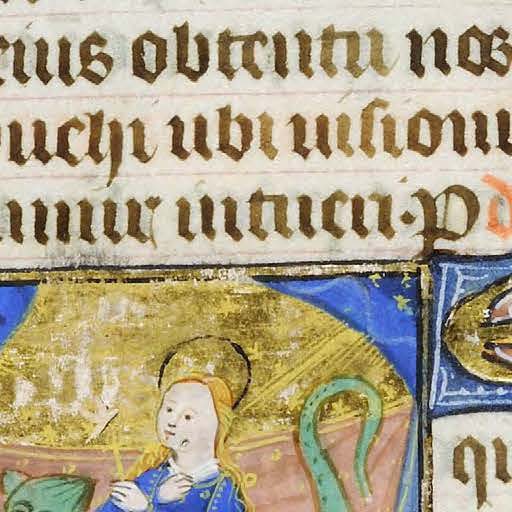 eius obtentu nos
uehi ubi uisionu
amur intueri. P
qu